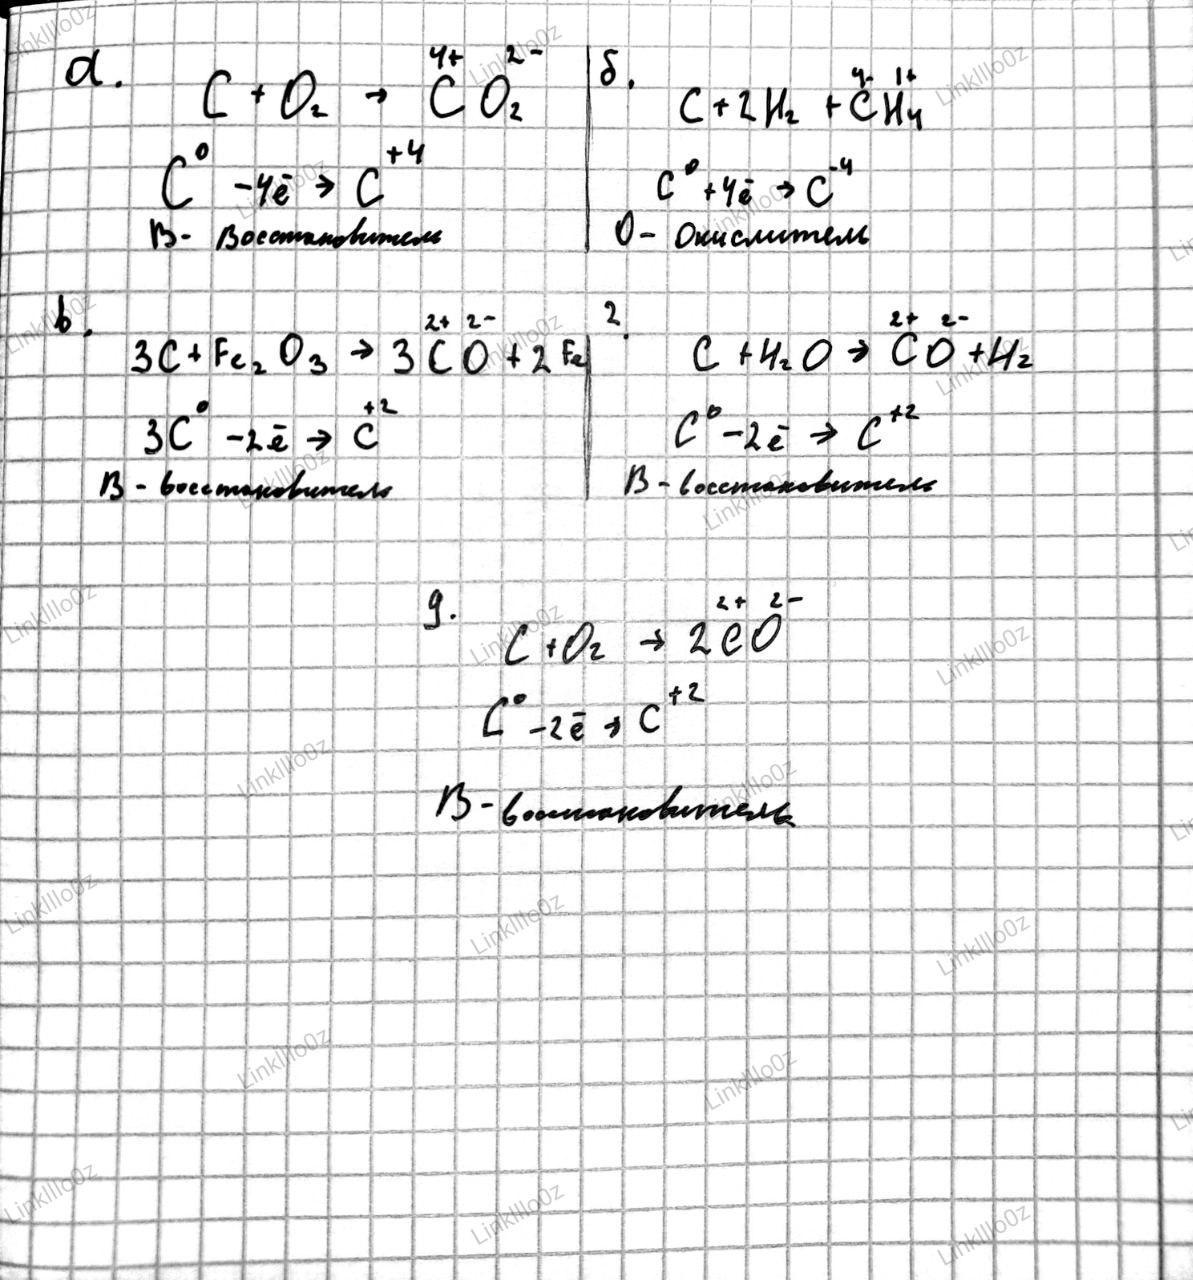 а.
C + O₂ → C⁴⁺O₂²⁻
C⁰ -4ē → C⁺⁴
В- Восстановитель
б.
C + 2H₂ + C⁴⁻H₄¹⁺
C⁰ +4ē → C⁻⁴
О- Окислитель
в.
3C + Fe₂O₃ → 3C²⁺O²⁻ + 2Fe
3C⁰ -2ē → C⁺²
В - восстановитель
г.
C + H₂O → C²⁺O²⁻ + H₂
C⁰ -2ē → C⁺²
В - восстановитель
д.
C + O₂ → 2C²⁺O²⁻
C⁰ -2ē → C⁺²
В - восстановитель
LinkIllo0z